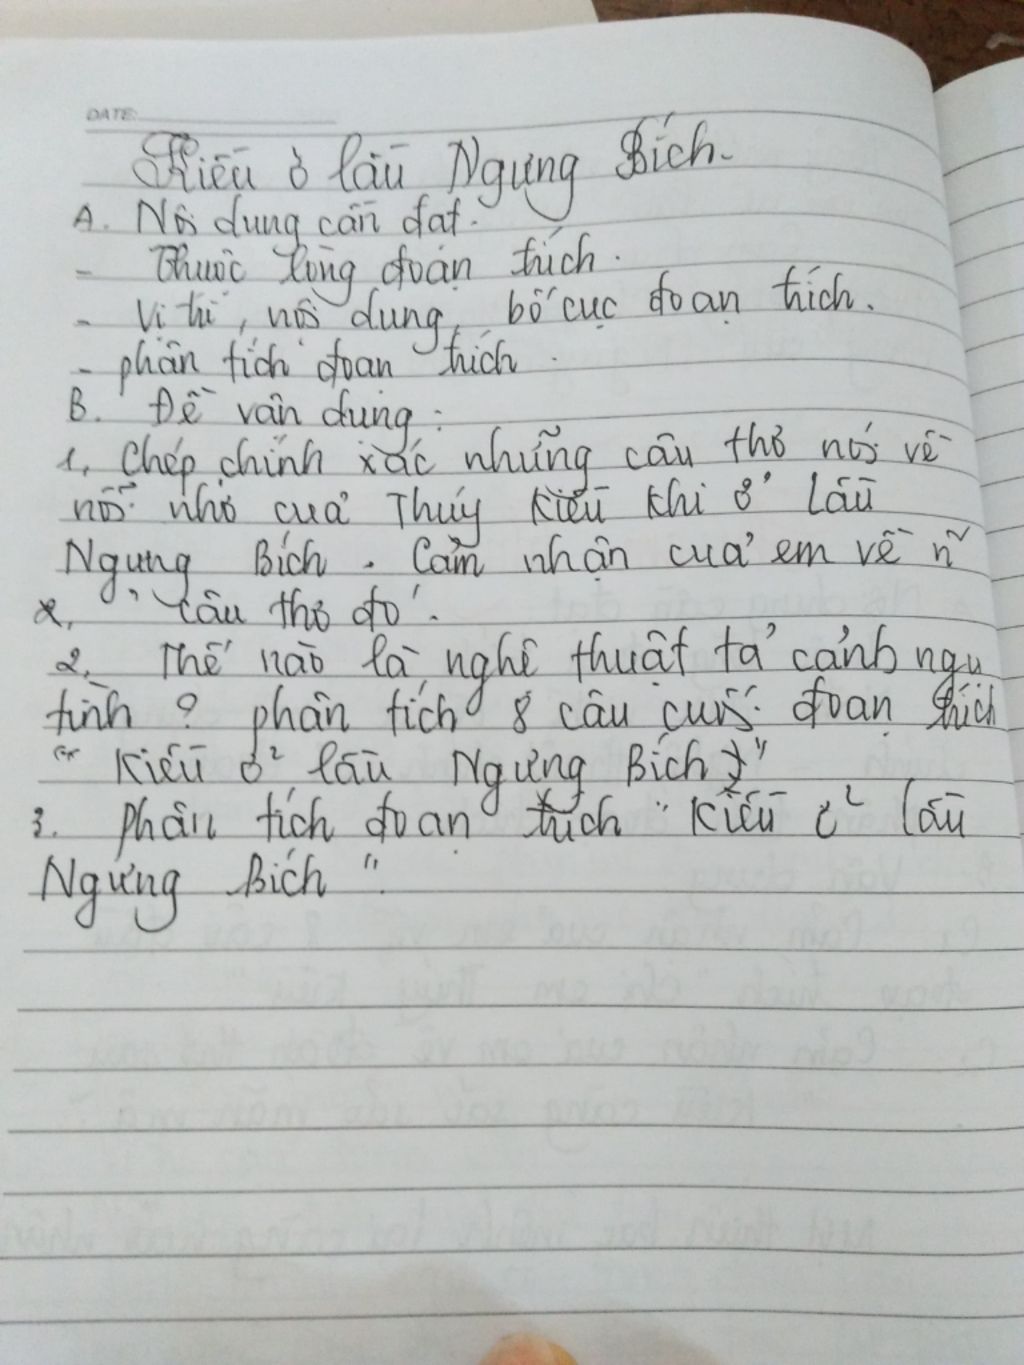 DATE:
Kiều ở lầu Ngưng Bích.
A. Nội dung cần đạt.
- Thuộc lòng đoạn trích.
- Vị trí, nội dung, bố cục đoạn trích.
- phân tích đoạn trích.
B. Đề vận dụng:
1, Chép chính xác những câu thơ nói về
nỗi nhớ của Thúy Kiều khi ở lầu
Ngưng Bích. Cảm nhận của em về n~
2, câu thơ đó.
2. Thế nào là nghệ thuật tả cảnh ngụ
tình? phân tích 8 câu cuối đoạn trích
"Kiều ở lầu Ngưng Bích"
3. Phân tích đoạn trích "Kiều ở lầu
Ngưng Bích"